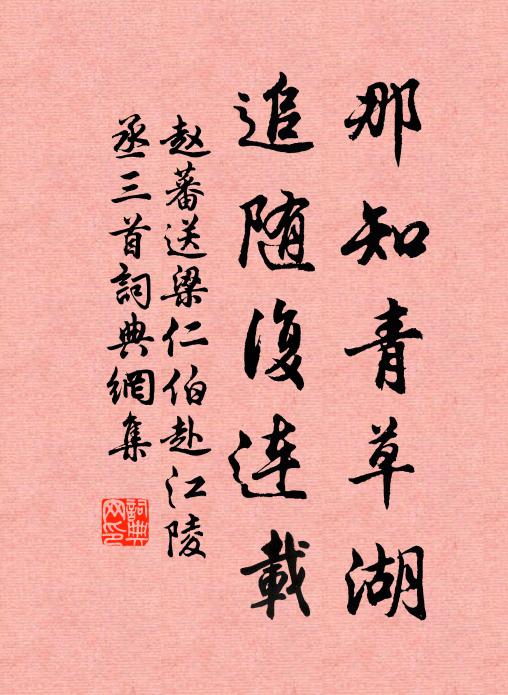 那知青草湖
追随復连載
赵蕃送梁仁伯赴江陵
丞三首詞典網集
詞典网印